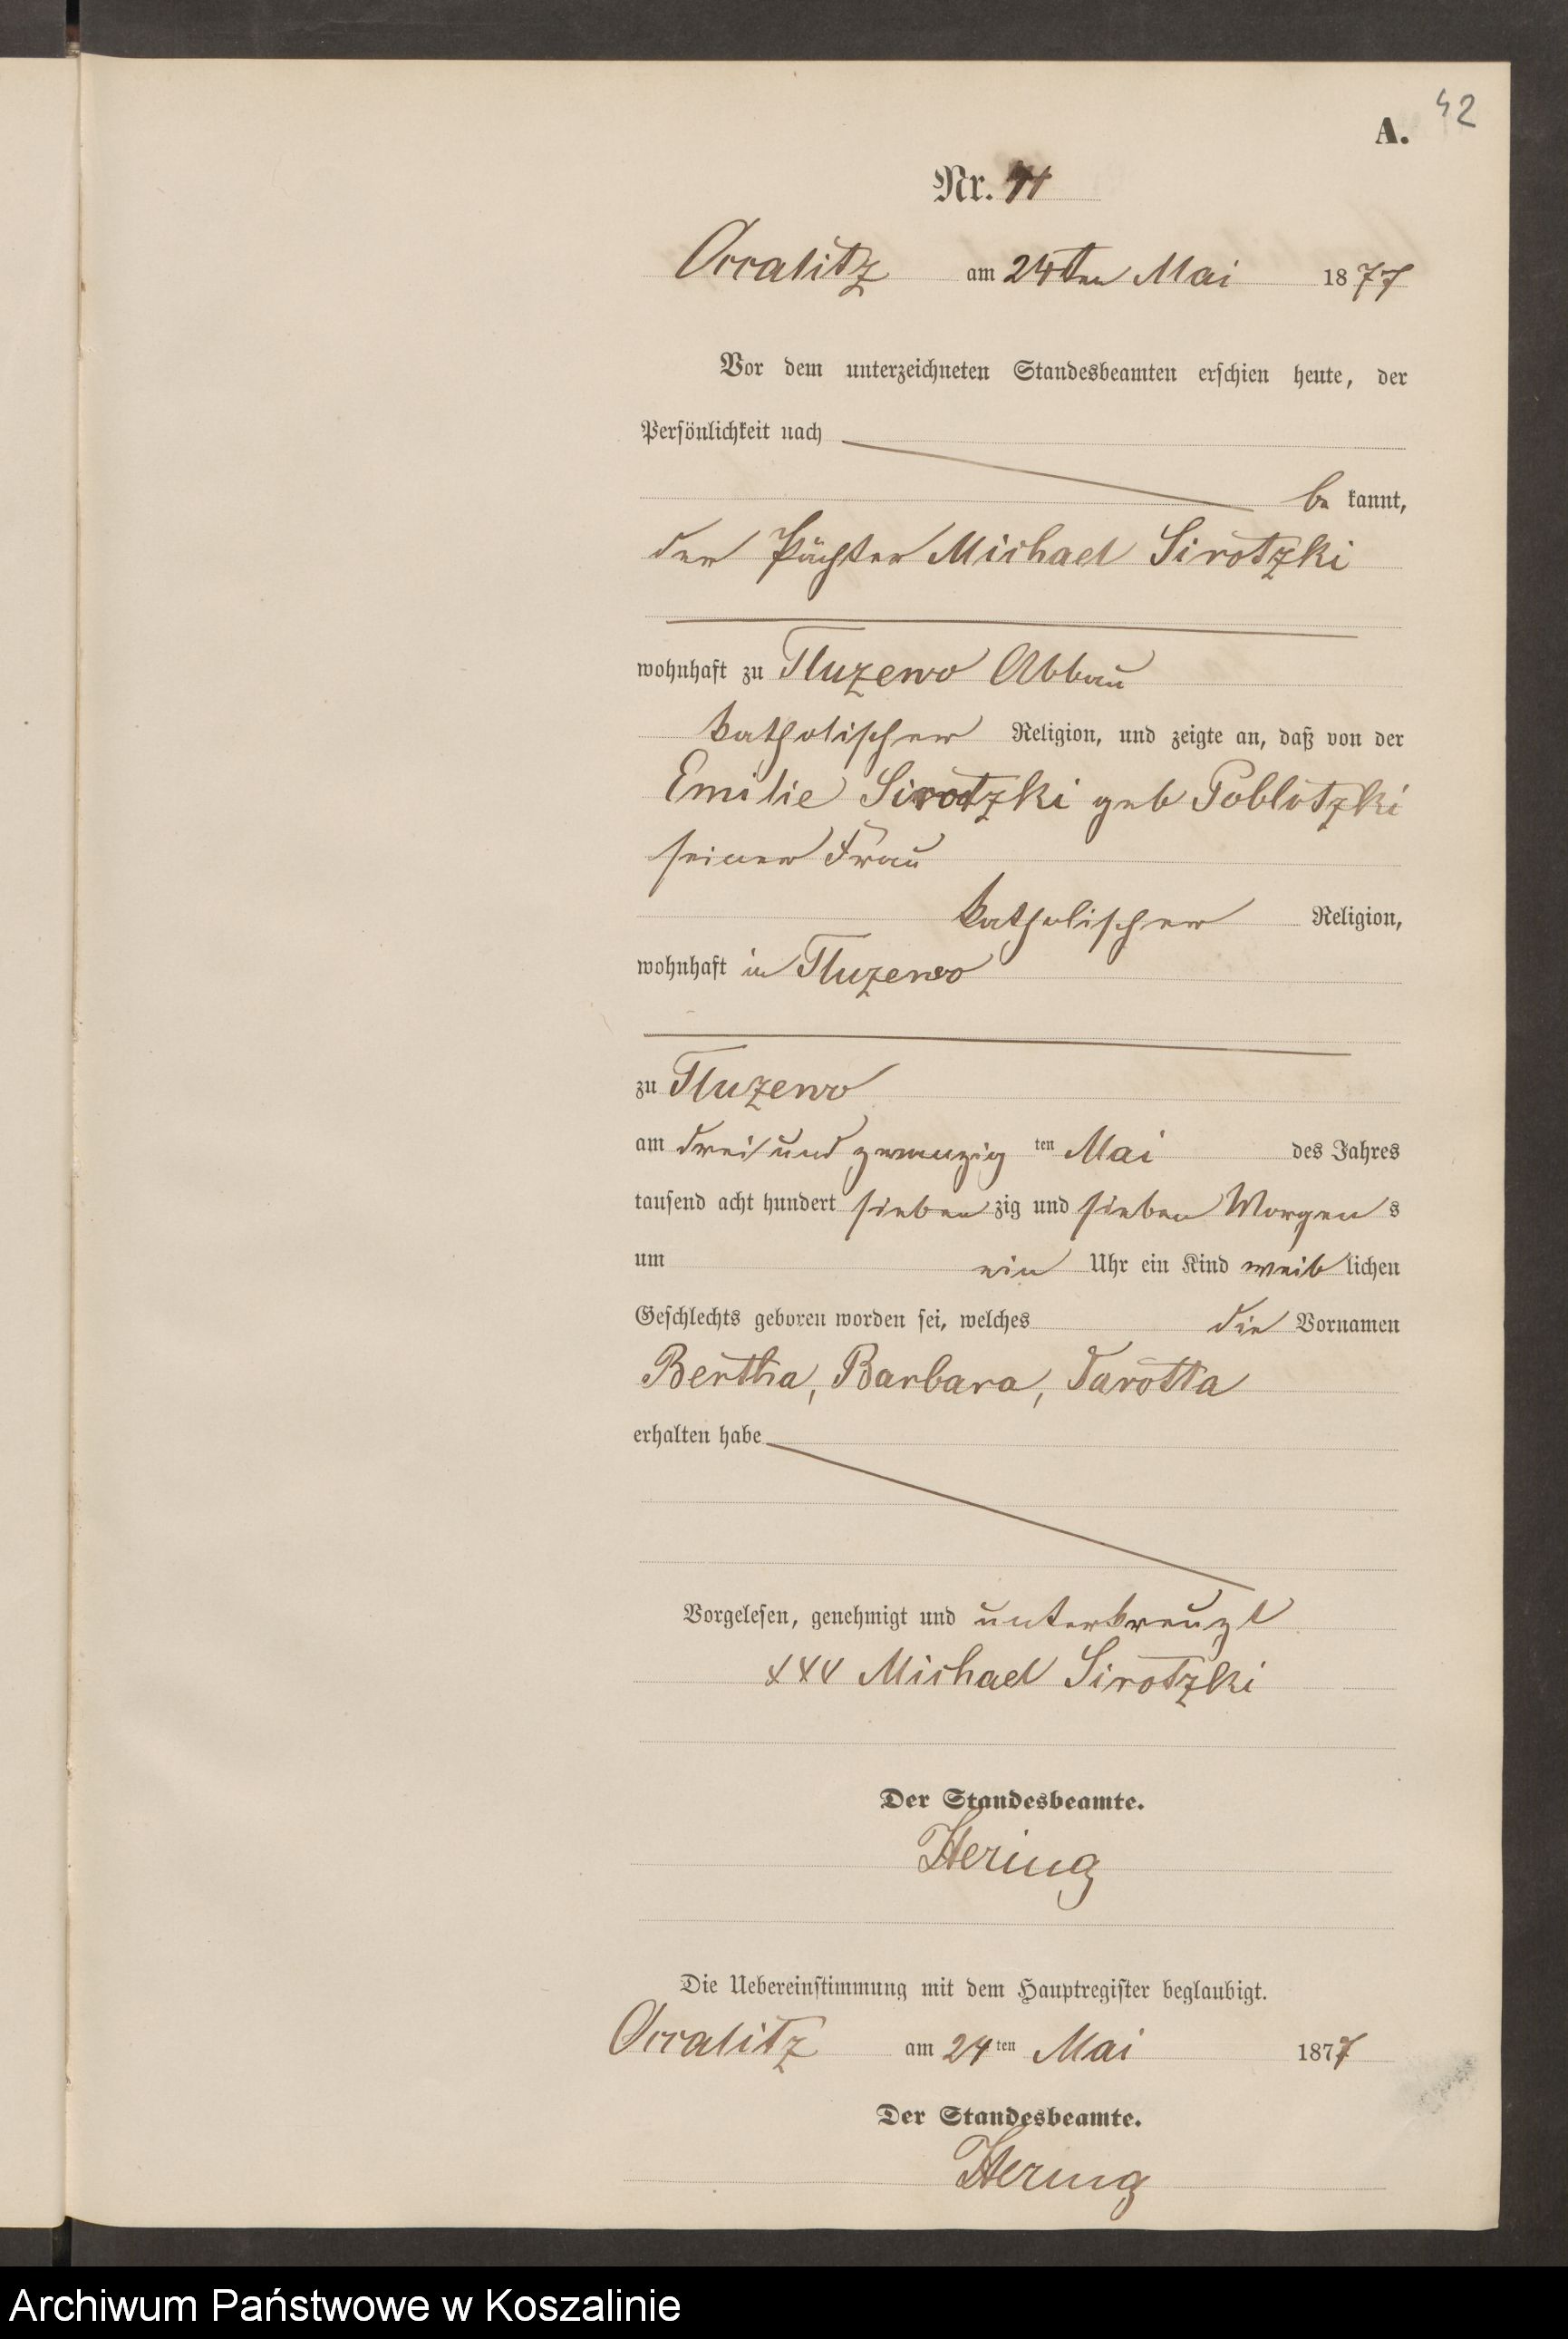 42
A.
Nr. 41
Occalitz am 24ten Mai 1877
Vor dem unterzeichneten Standesbeamten erschien heute, der
Persönlichkeit nach
be kannt,
der Pächter Michael Sirotzki
wohnhaft zu Tluzewo Abbau
katholischer Religion, und zeigte an, daß von der
Emilie Sirotzki geb Poblotzki
seiner Frau
katholischer Religion,
wohnhaft in Tluzewo
zu Tluzewo
am drei und zwanzig ten Mai des Jahres
tausend acht hundert sieben zig und sieben Morgen s
um ein Uhr ein Kind weib lichen
Geschlechts geboren worden sei, welches die Vornamen
Bertha, Barbara, Darotta
erhalten habe
Vorgelesen, genehmigt und unterkreuzt
xxx Michael Sirotzki
Der Standesbeamte.
Hering
Die Uebereinstimmung mit dem Hauptregister beglaubigt.
Occalitz am 24ten Mai 1877
Der Standesbeamte.
Hering
Archiwum Państwowe w Koszalinie